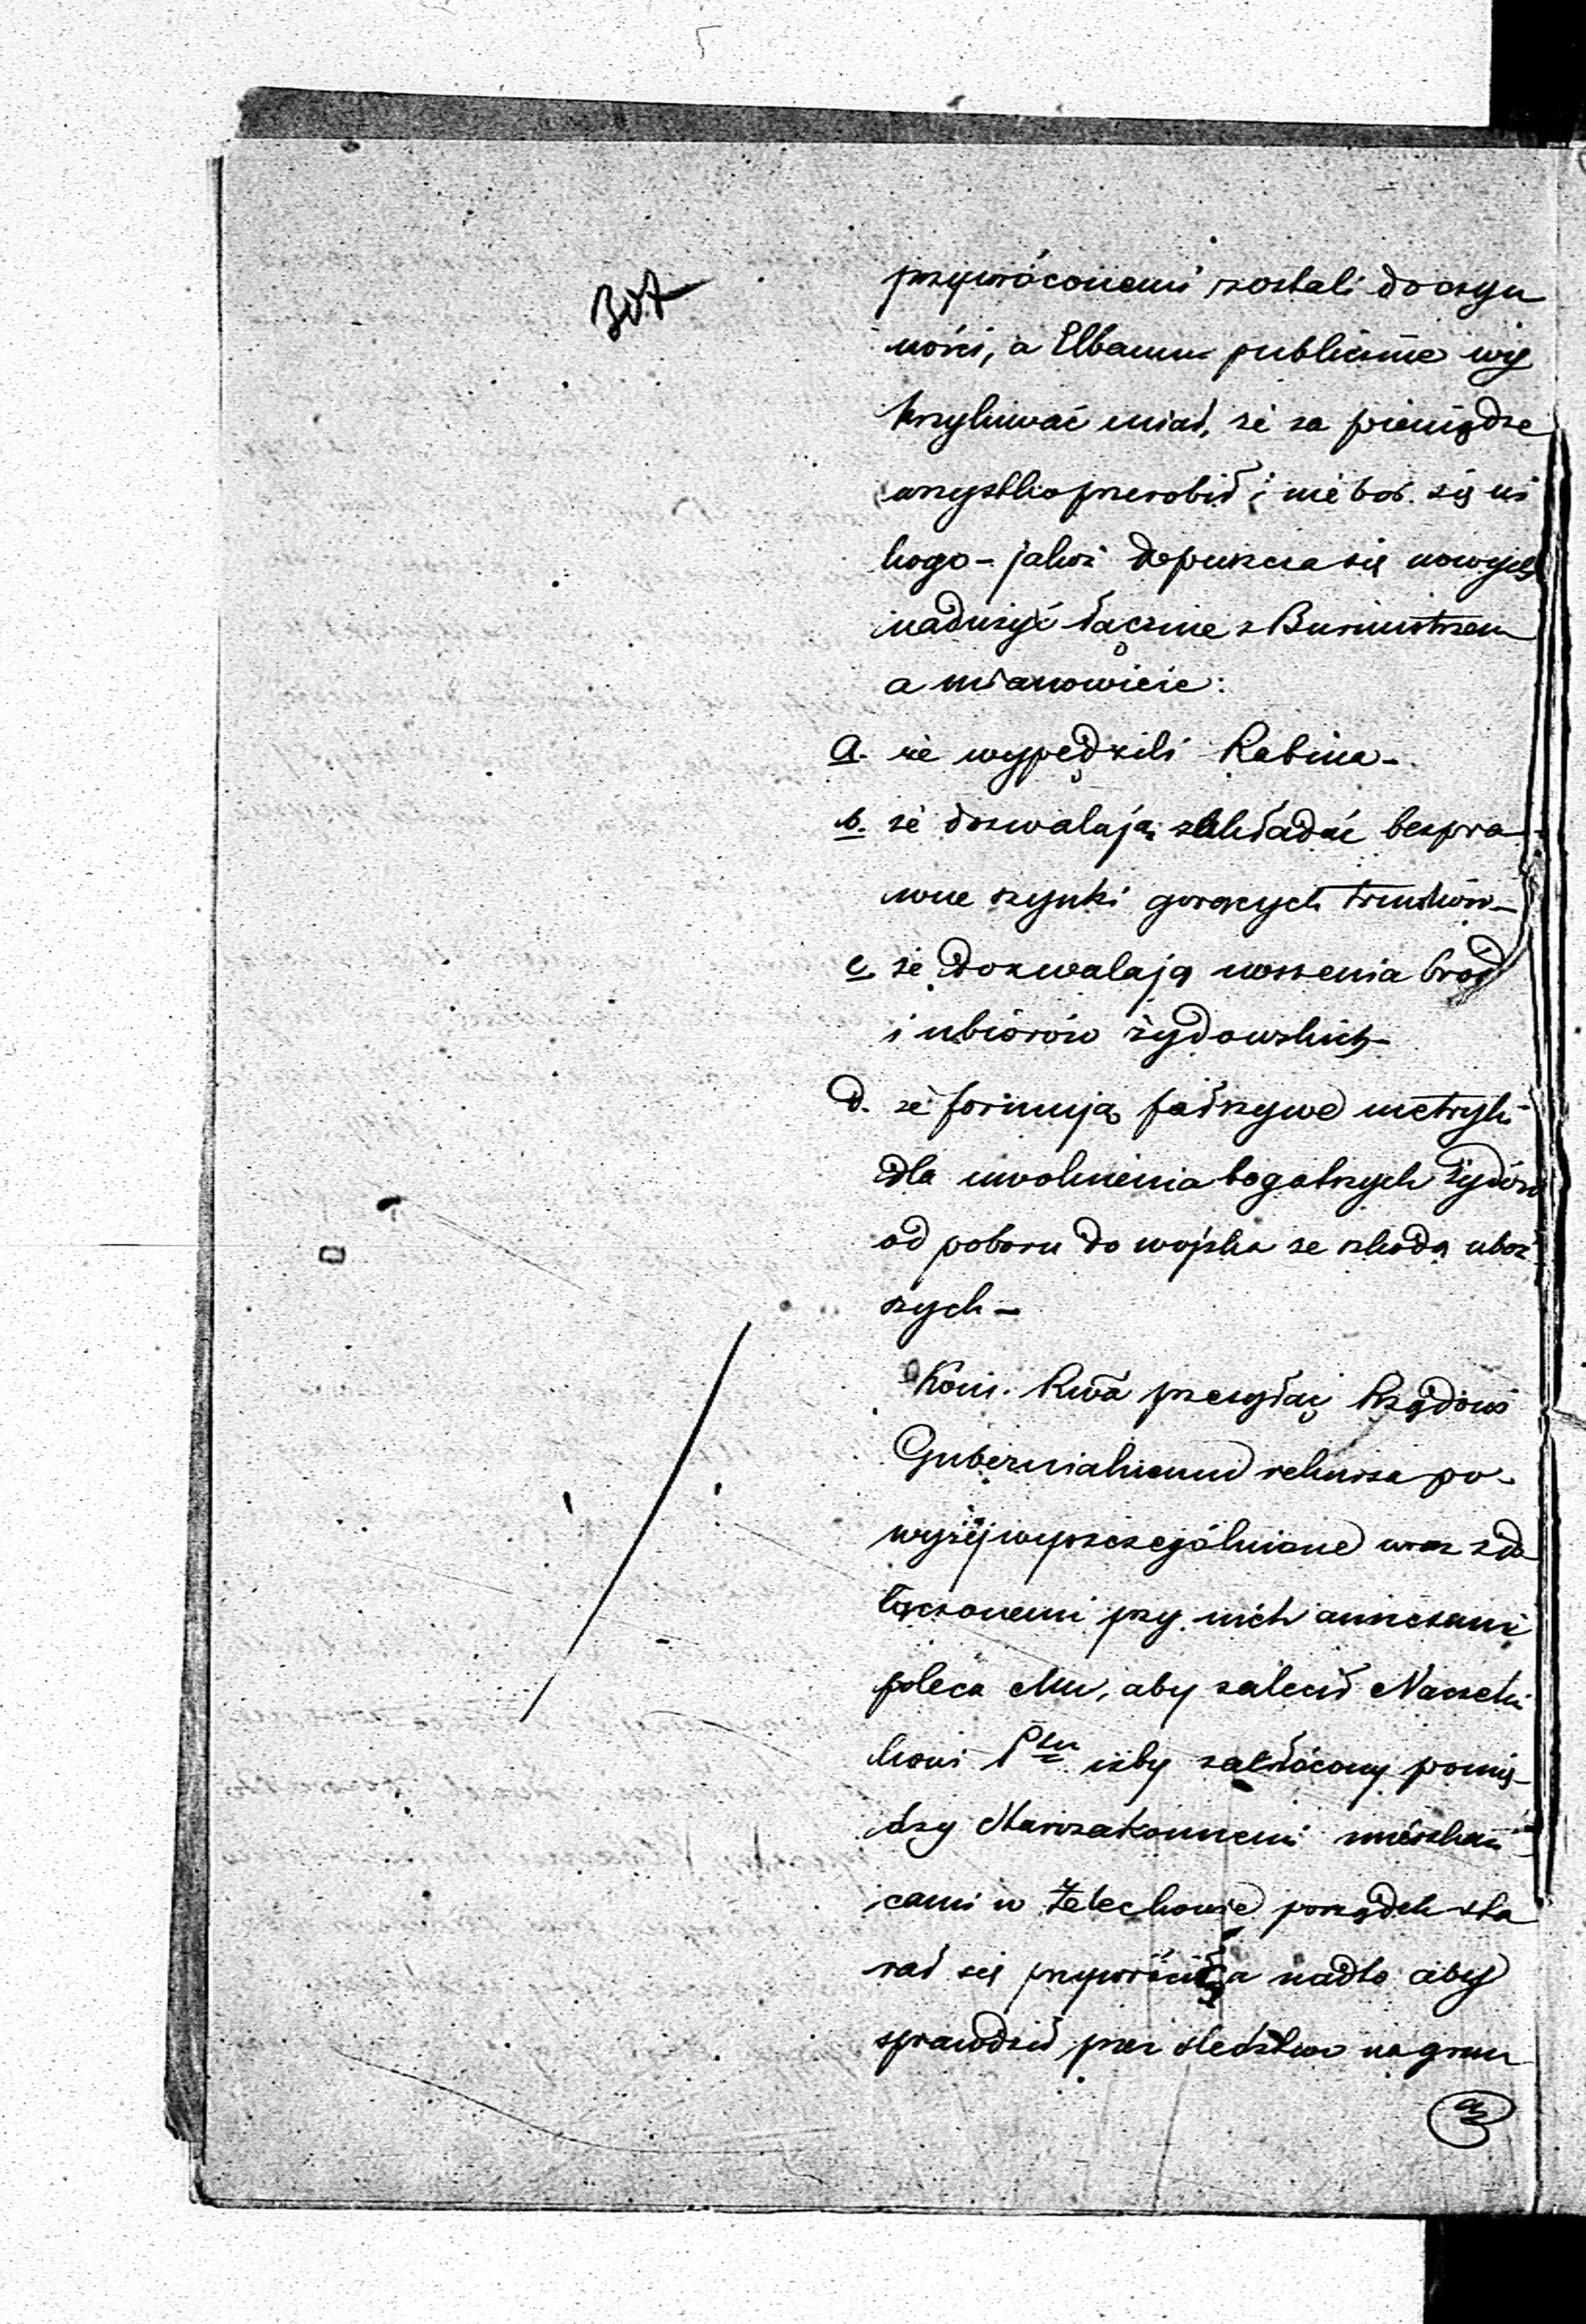 307
przywróconemi zostali do czyn
ności, a Elbaum publicznie wy
krzykiwać miał, że za pieniądze
wszystko przerobił i nie boi się ni
kogo – jakoż dopuszcza się nowych
nadużyć łącznie z Burmistrzem
a mianowicie:
a. że wypędzili Rabina –
b. że dozwalają zakładać bezpra-
wne szynki gorących trunków –
c. że dozwalają noszenia bród
i ubiorów żydowskich –
d. że formują fałszywe metryki
dla uwolnienia bogatszych Żydów
od poboru do wojska ze szkodą uboż
szych –
Kom. Rwa przesyłając Rządowi
Gubernialnemu rekursa po-
wyżéj wyszczególnione wraz z do
łączonemi przy nich annexami
poleca Mu, aby zalecił Naczelni
kowi Ptu iżby zakłócony pomię-
dzy Starozakonnemi mieszkań
cami w Żelechowie porządek sta
rał się przywrócić, a nadto aby
sprawdził przez śledztwo na grun